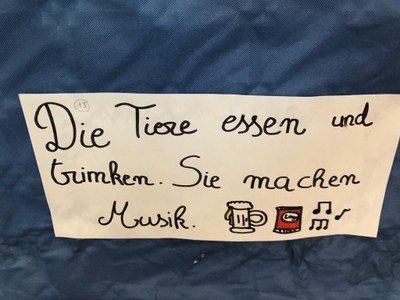 Die Tiere essen und
trinken. Sie machen
Musik.